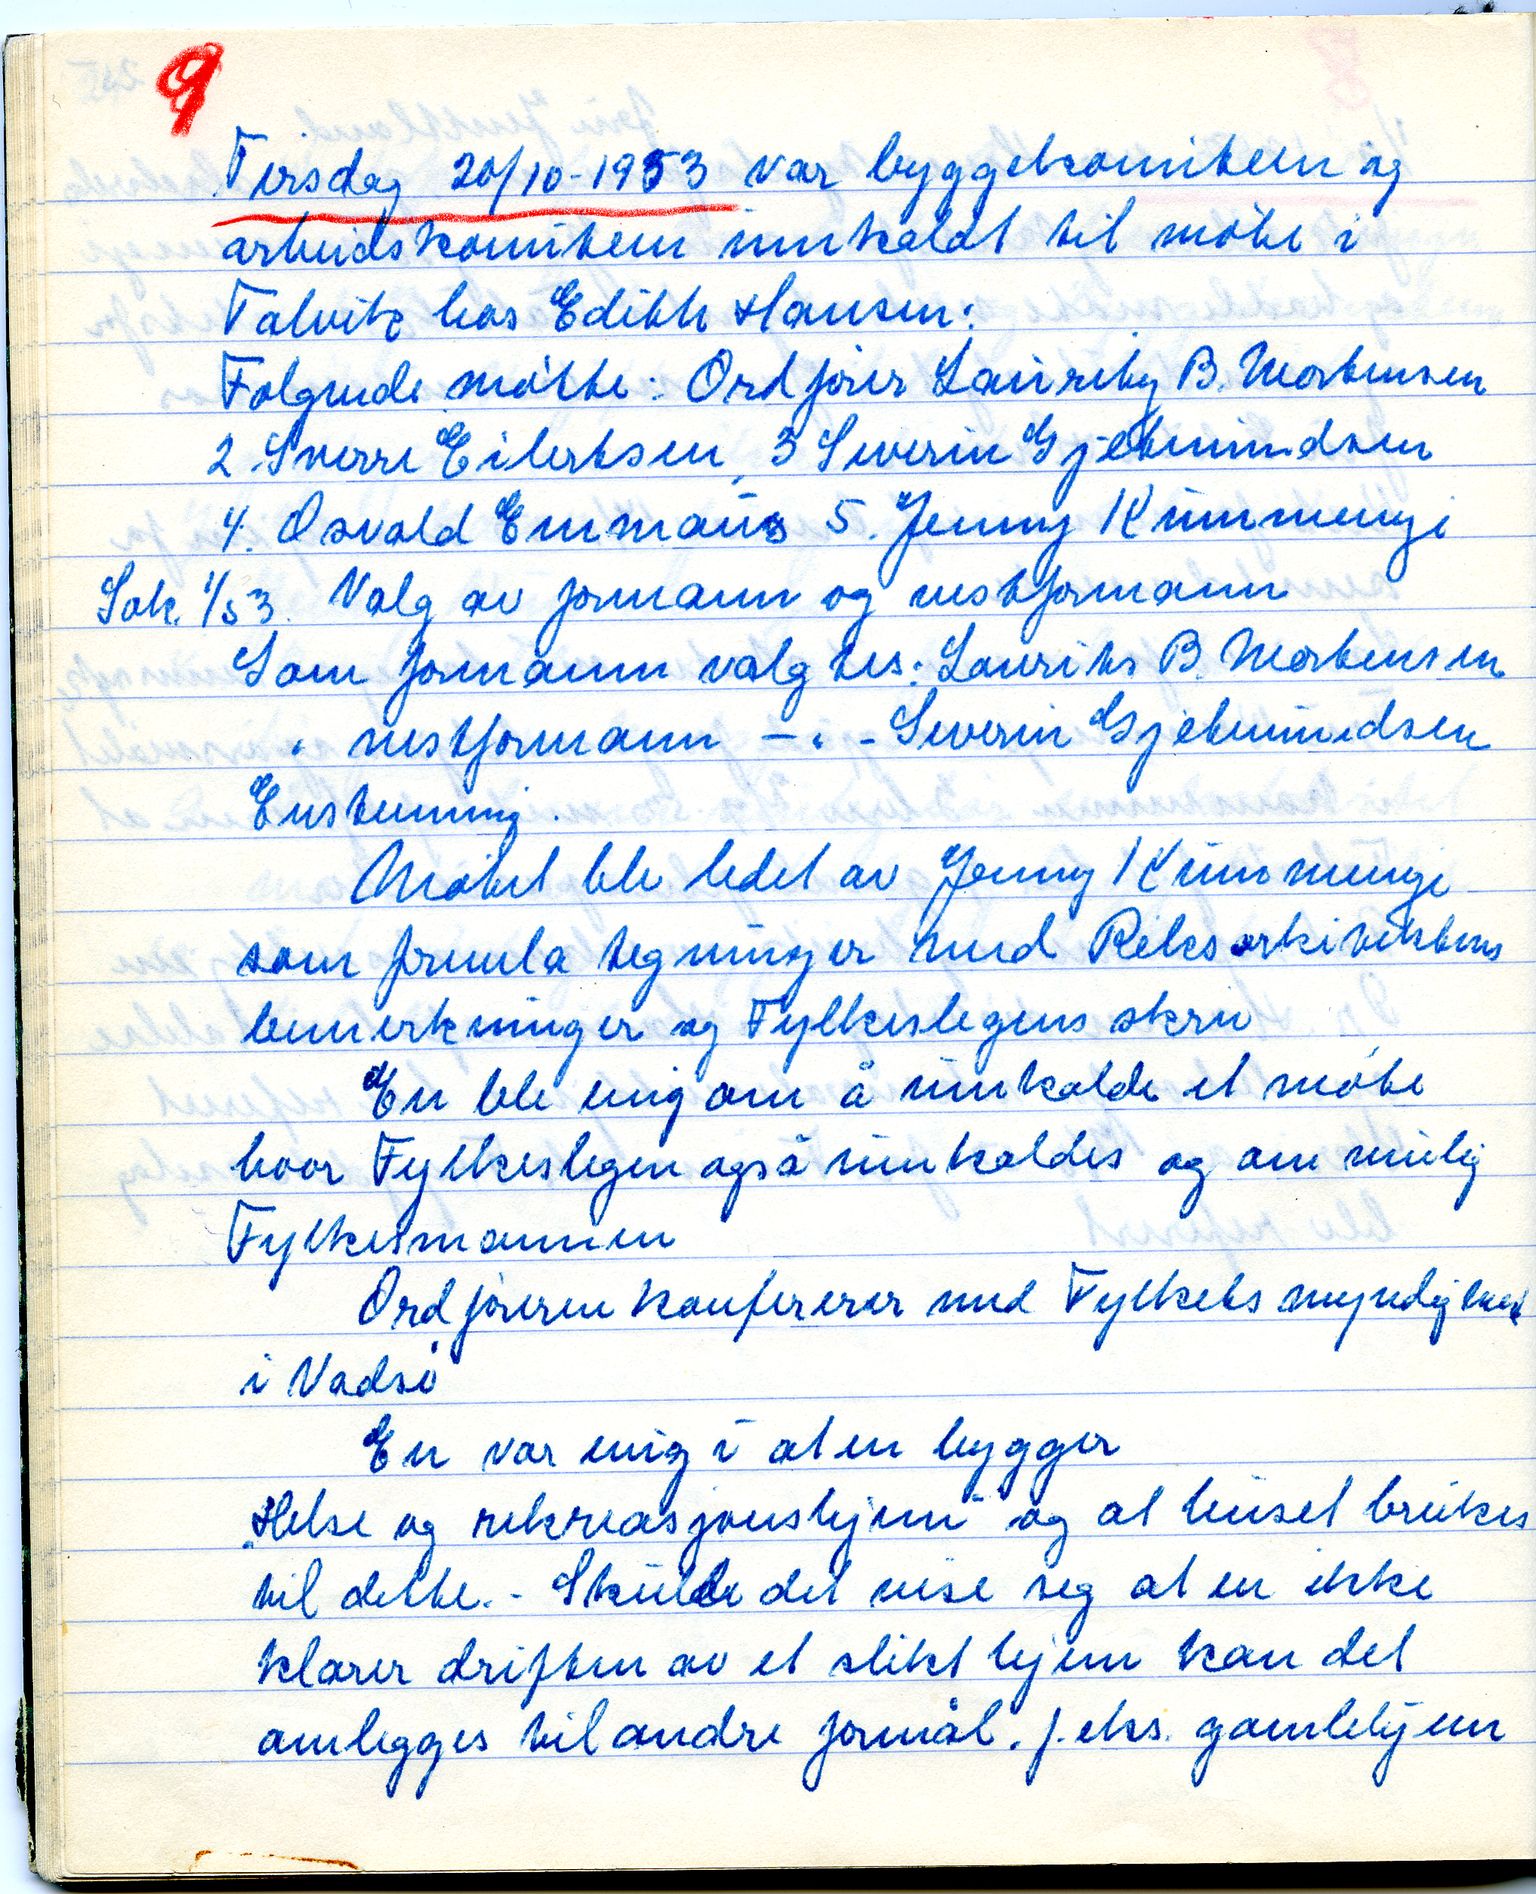 9
Tirsdag 20/10-1953 var byggekomiteen og
arbeidskomiteen innkaldt til møte i
Talvik hos Edith Hansen:
Følgende møtte: Ordfører Lauritz B. Mortensen
2. Sverre Eilertsen, 3 Severin Gjetmundsen
4. Osvald Emmaus 5. Jenny Kummenje
Sak. 1/53. Valg av formann og nestformann
Som formann valgtes: Laurits B. Mortensen
" nestformann - " - Severin Gjetmundsen
Enstemmig.
Møtet ble ledet av Jenny Kummenje
som fremla tegninger med Riksarkitektens
bemerkninger og Fylkeslegens skriv
En ble enig om å innkalde et møte
hvor Fylkeslegen også innkaldes og om mulig
Fylkesmannen
Ordføreren konfererer med Fylkets myndighet
i Vadsø
En var enig i at en bygger
"Helse og rekreasjonshjem" og at huset brukes
til dette. - Skulde det vise seg at en ikke
klarer driften av et slikt hjem kan det
omlegges til andre formål. f.eks. gamlehjem